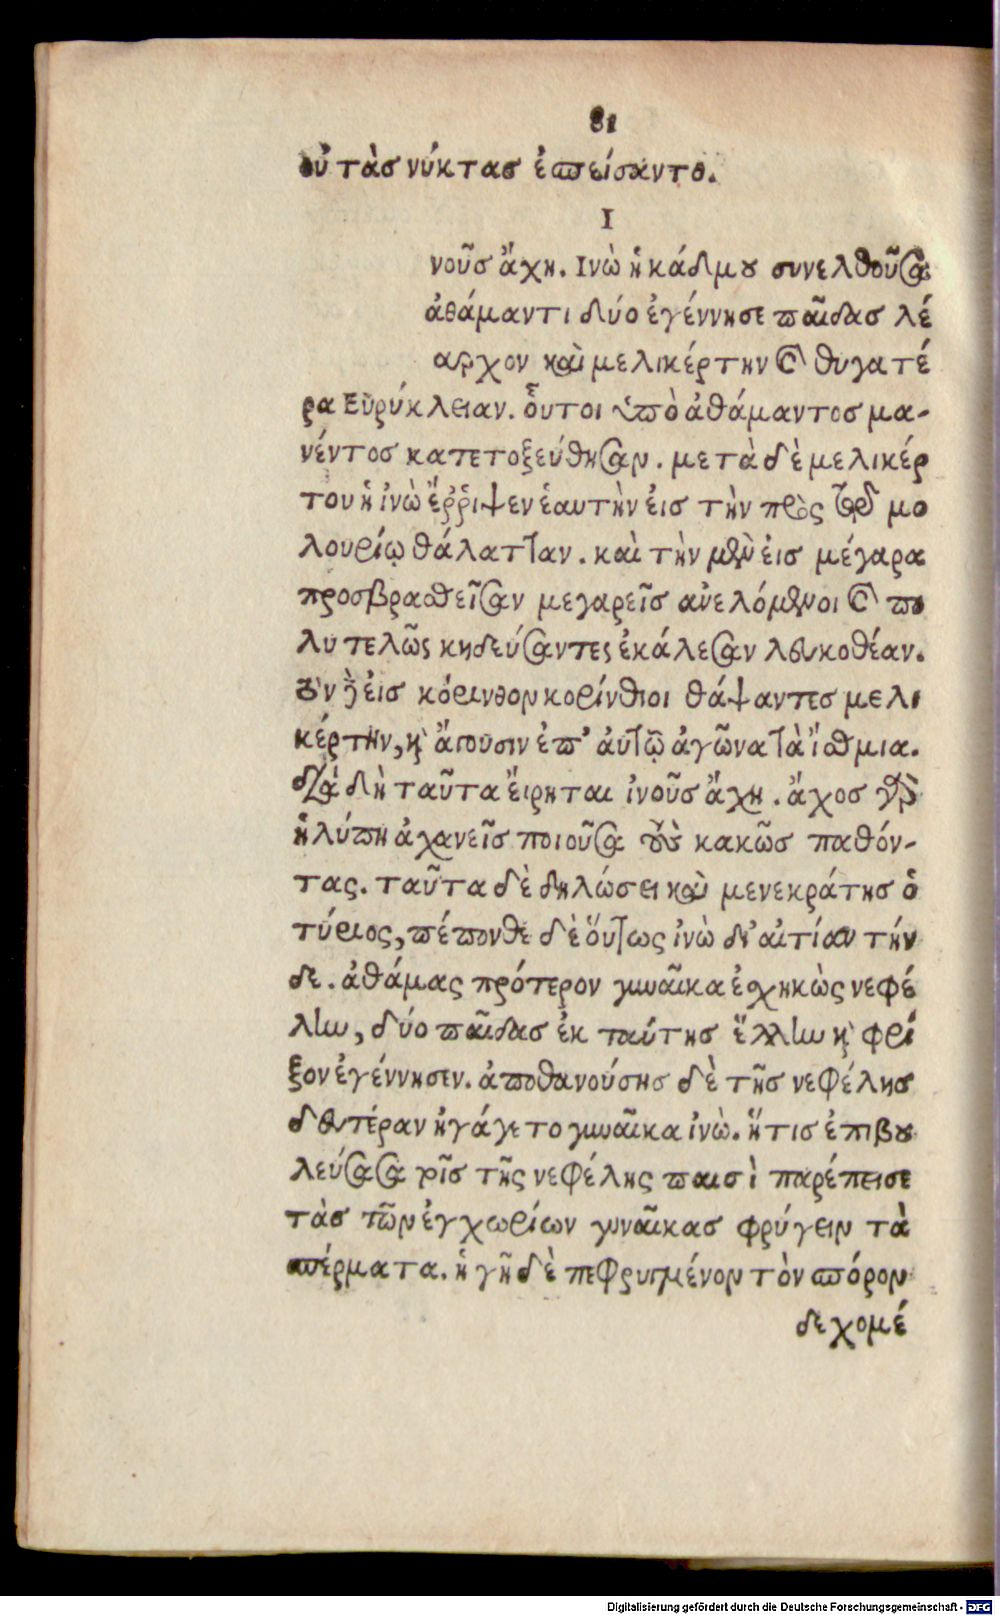 81
οὐ τὰσ νύκτασ ἐπείσαντο.
Ι
νοῦσ ἄχη. Ινὼ ἡ κάδμου συνελθοῦσα
ἀθάμαντι δύο ἐγέννησε παῖδασ λέ
αρχον καὶ μελικέρτην καὶ θυγατέ
ρα Εὐρύκλειαν. οὗτοι ὑπὸ ἀθάμαντοσ μα-
νέντοσ κατετοξεύθησαν. μετὰ δὲ μελικέρ
του ἡ ἰνὼ ἔῤῥιψεν ἑαυτὴν εἰσ τὴν πρὸς τῷ μο
λουρίῳ θάλατταν. καὶ τὴν μὲν εἰσ μέγαρα
προσβρασθεῖσαν μεγαρεῖσ ἀνελόμενοι καὶ πο
λυτελῶς κηδεύσαντες ἐκάλεσαν λευκοθέαν.
τὸν δὲ εἰσ κόρινθον κορίνθιοι θάψαντεσ μελι
κέρτην, καὶ ἄγουσιν ἐπ' αὐτῷ ἀγῶνα τὰ ἴσθμια.
διὰ δὴ ταῦτα εἴρηται ἰνοῦσ ἄχη. ἄχοσ γὰρ
ἡ λύπη ἀχανεῖσ ποιοῦσα τοὺς κακῶσ παθόν-
τας. ταῦτα δὲ δηλώσει καὶ μενεκράτησ ὁ
τύριος, πέπονθε δὲ οὕτως ἰνὼ δι' αἰτίαν τήν
δε. ἀθάμας πρότερον γυναῖκα ἐσχηκὼς νεφέ
λην, δύο παῖδασ ἐκ ταύτησ ἕλλην καὶ φρί
ξον ἐγέννησεν. ἀποθανούσησ δὲ τῆσ νεφέλησ
δευτέραν ἠγάγετο γυναῖκα ἰνὼ. ἥτισ ἐπιβου
λεύσασα τοῖσ τῆς νεφέλης παισὶ παρέπεισε
τὰσ τῶν ἐγχωρίων γυναῖκασ φρύγειν τὰ
σπέρματα. ἡ γῆ δὲ πεφρυγμένον τὸν σπόρον
δεχομέ
Digitalisierung gefördert durch die Deutsche Forschungsgemeinschaft - DFG